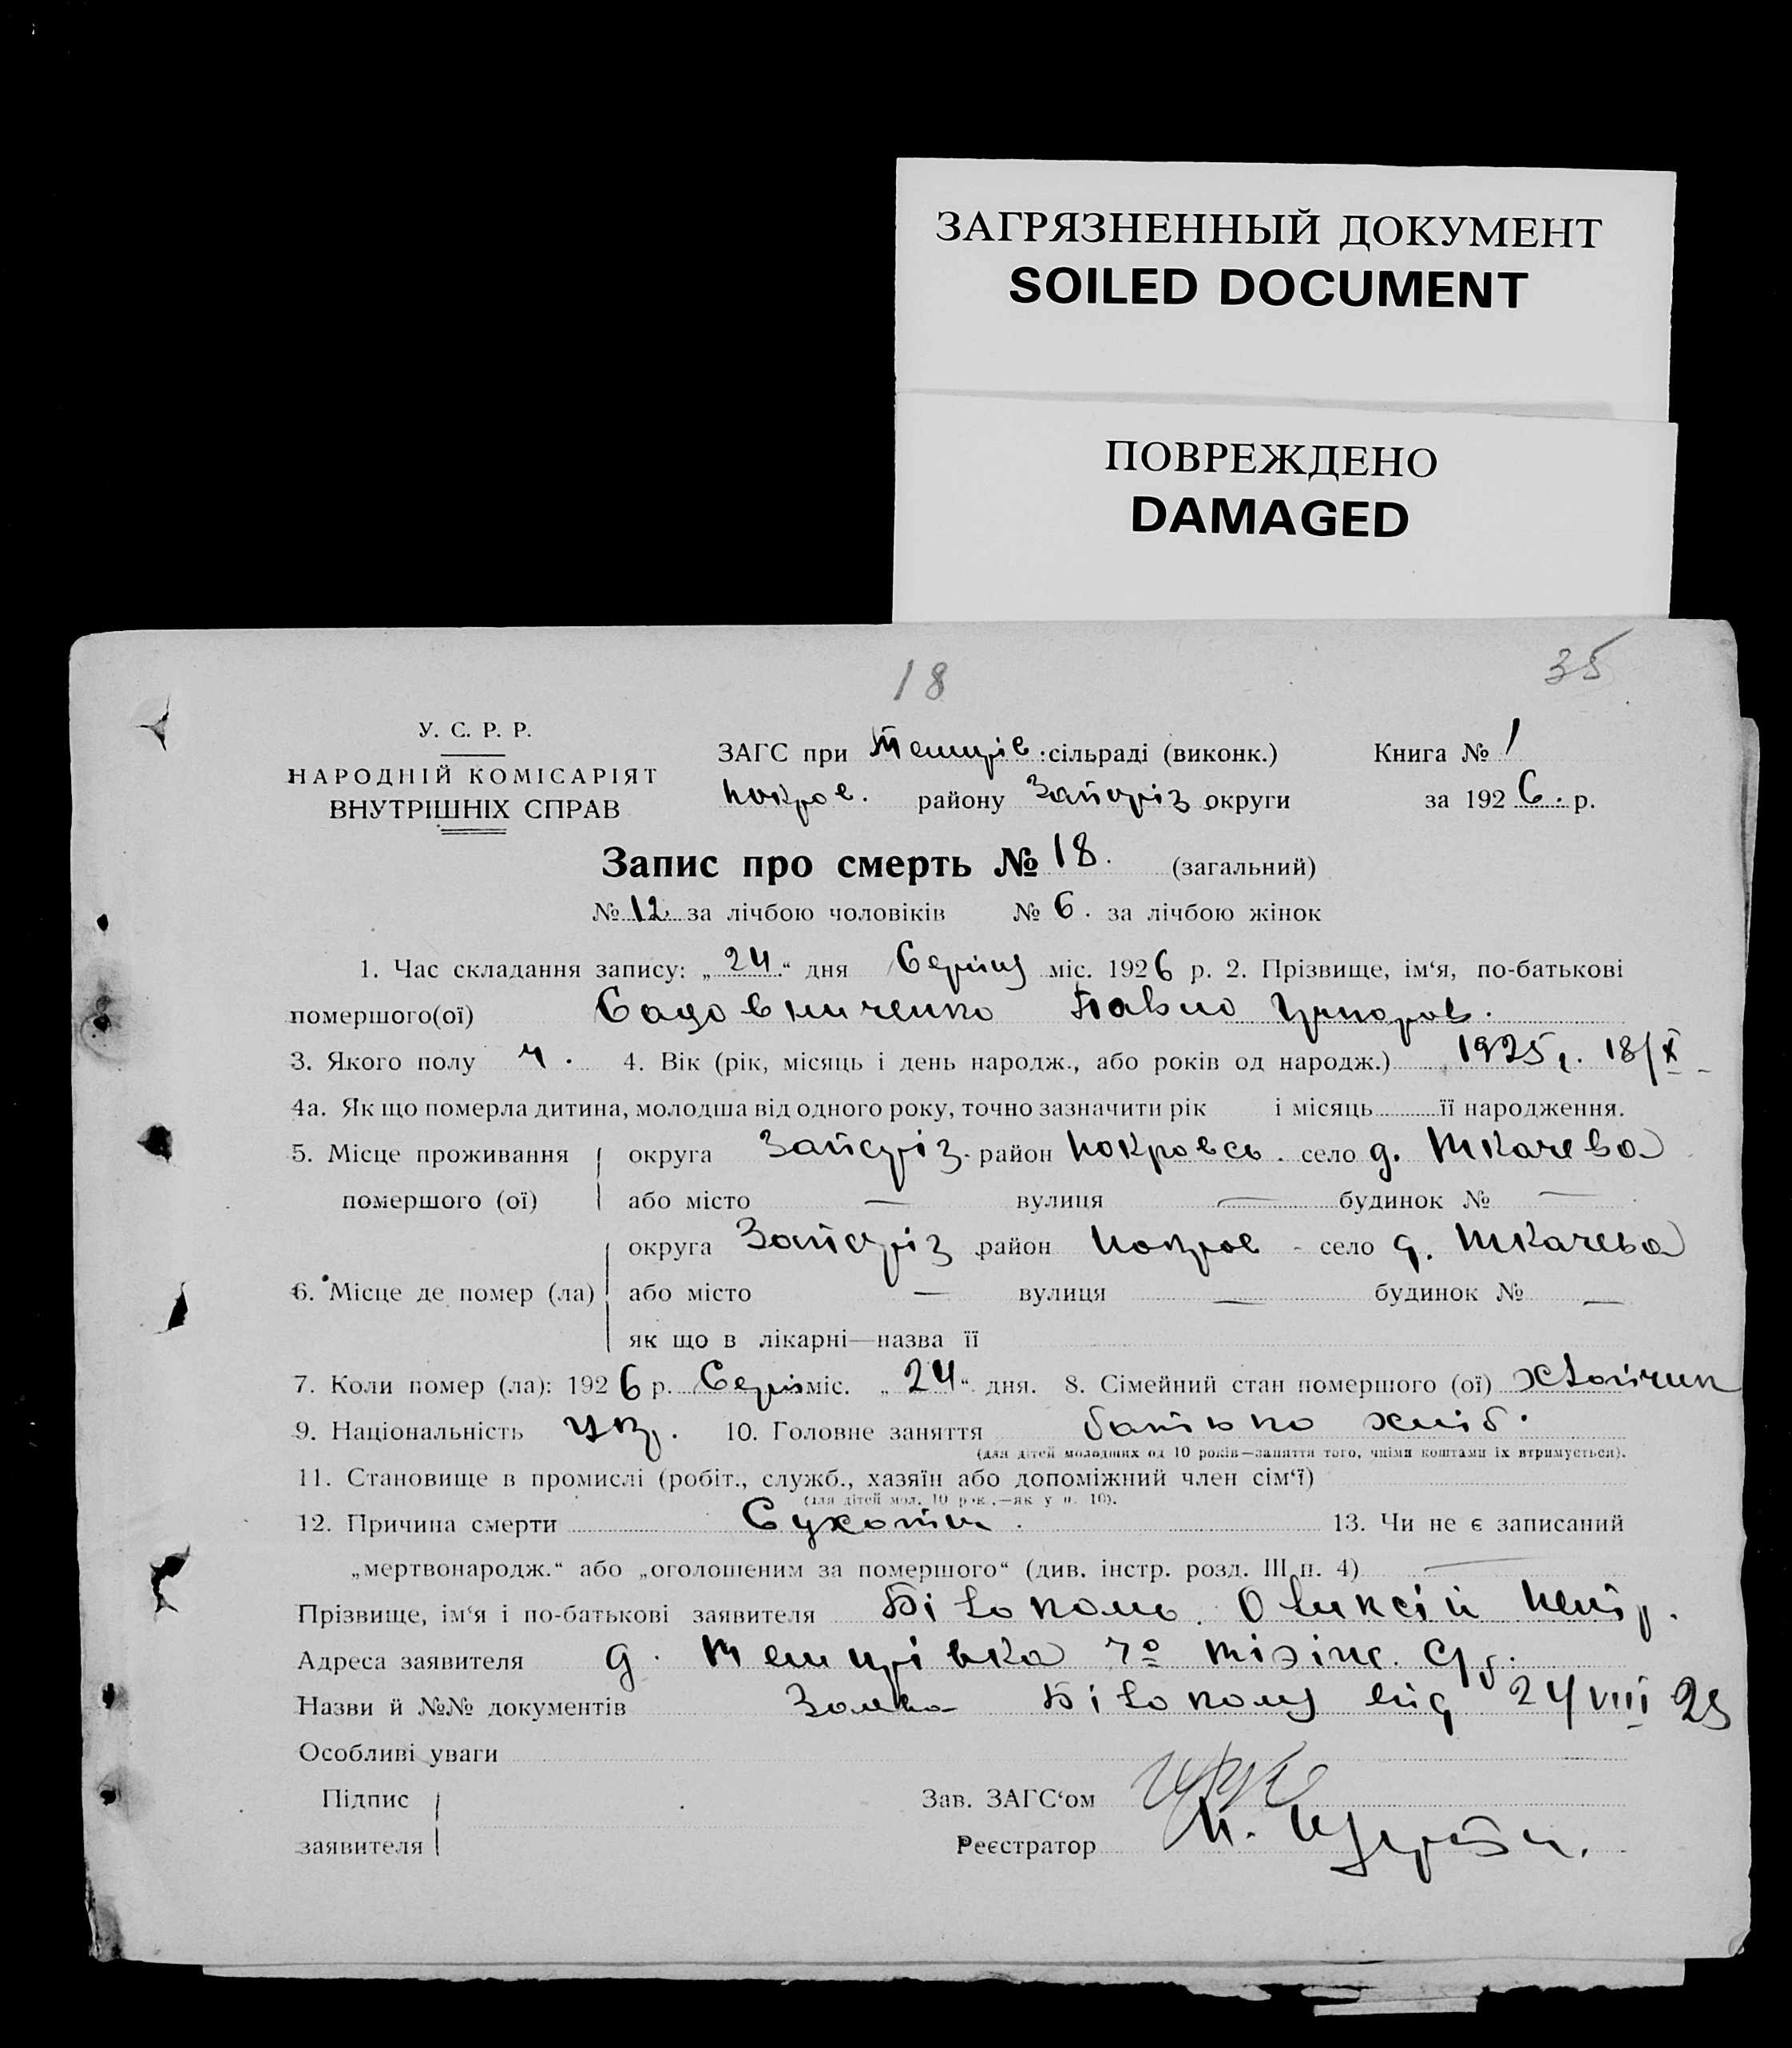 ЗАГРЯЗНЕННЫЙ ДОКУМЕНТ
SOILED DOCUMENT
ПОВРЕЖДЕНО
DAMAGED
18
35
У. С. Р. Р.
НАРОДНІЙ КОМІСАРІЯТ
ВНУТРІШНІХ СПРАВ
ЗАГС при сільраді (виконк.) Книга № 1
Покров. району Запоріз округи за 1926. р.
Запис про смерть № 18. (загальний)
№ 12 за лічбою чоловіків № 6. за лічбою жінок
1. Час складання запису: „24“ дня Серпня міс. 1926 р. 2. Прізвище, ім‘я, по-батькові
помершого(ої) Садовниченко Павло Григоров.
3. Якого полу ч. 4. Вік (рік, місяць і день народж., або років од народж.) 1925 р. 18/X
4а. Як що померла дитина, молодша від одного року, точно зазначити рік і місяць її народження.
5. Місце проживання помершого (ої) округа Запоріз. район Покровсь. село д. Ткачева
або місто — вулиця — будинок № —
6. Місце де помер (ла) округа Запоріз район Покров - село д. Ткачева
або місто — вулиця — будинок № —
як що в лікарні—назва її
7. Коли помер (ла): 1926 р. Серпн міс. „24“ дня. 8. Сімейний стан помершого (ої) хлопчик
9. Національність укр. 10. Головне заняття батько хліб.
(для дітей молодших од 10 років—заняття того, чиїми коштами їх втримується).
11. Становище в промислі (робіт., служб., хазяїн або допоміжний член сім‘ї)
(для дітей мол. 10 рок.,—як у п. 10).
12. Причина смерти Сухоти. 13. Чи не є записаний
„мертвонародж.“ або „оголошеним за помершого“ (див. інстр. розд. III п. 4) —
Прізвище, ім‘я і по-батькові заявителя Білоконь Оликсій Петр.
Адреса заявителя д.
Назви й №№ документів Заява Білоконь від 24/VIII 25
Особливі уваги
Підпис заявителя
Зав. ЗАГС‘ом
Реєстратор